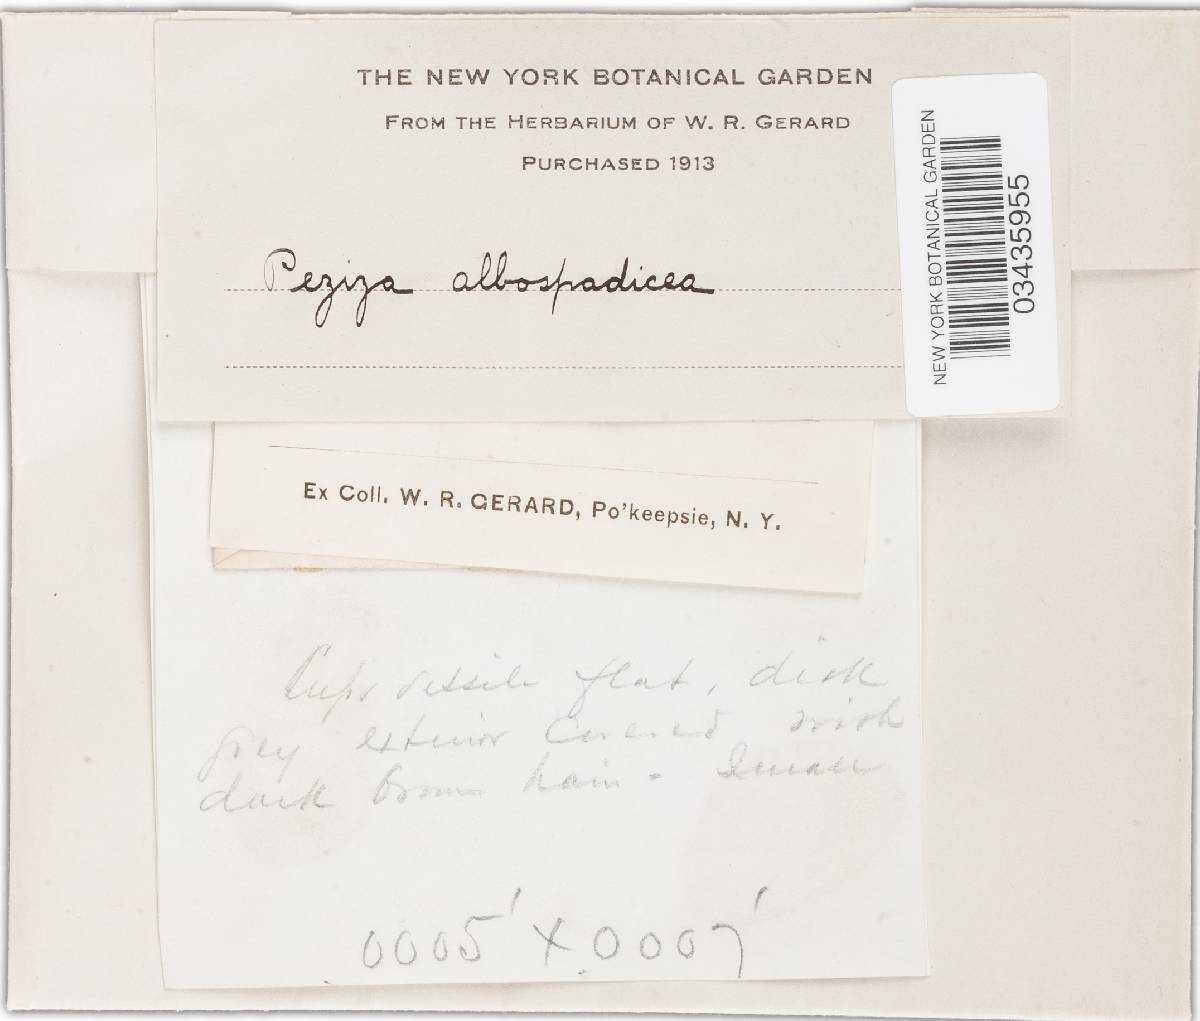 THE NEW YORK BOTANICAL GARDEN
FROM THE HERBARIUM OF W. R. GERARD
PURCHASED 1913
Peziza albospadicea
NEW YORK BOTANICAL GARDEN
03435955
Ex Coll. W. R. GERARD, Po'keepsie, N. Y.
Cups sessile flat, disk
grey exterior covered with
dark brown hair - Small
0005' X .0007'